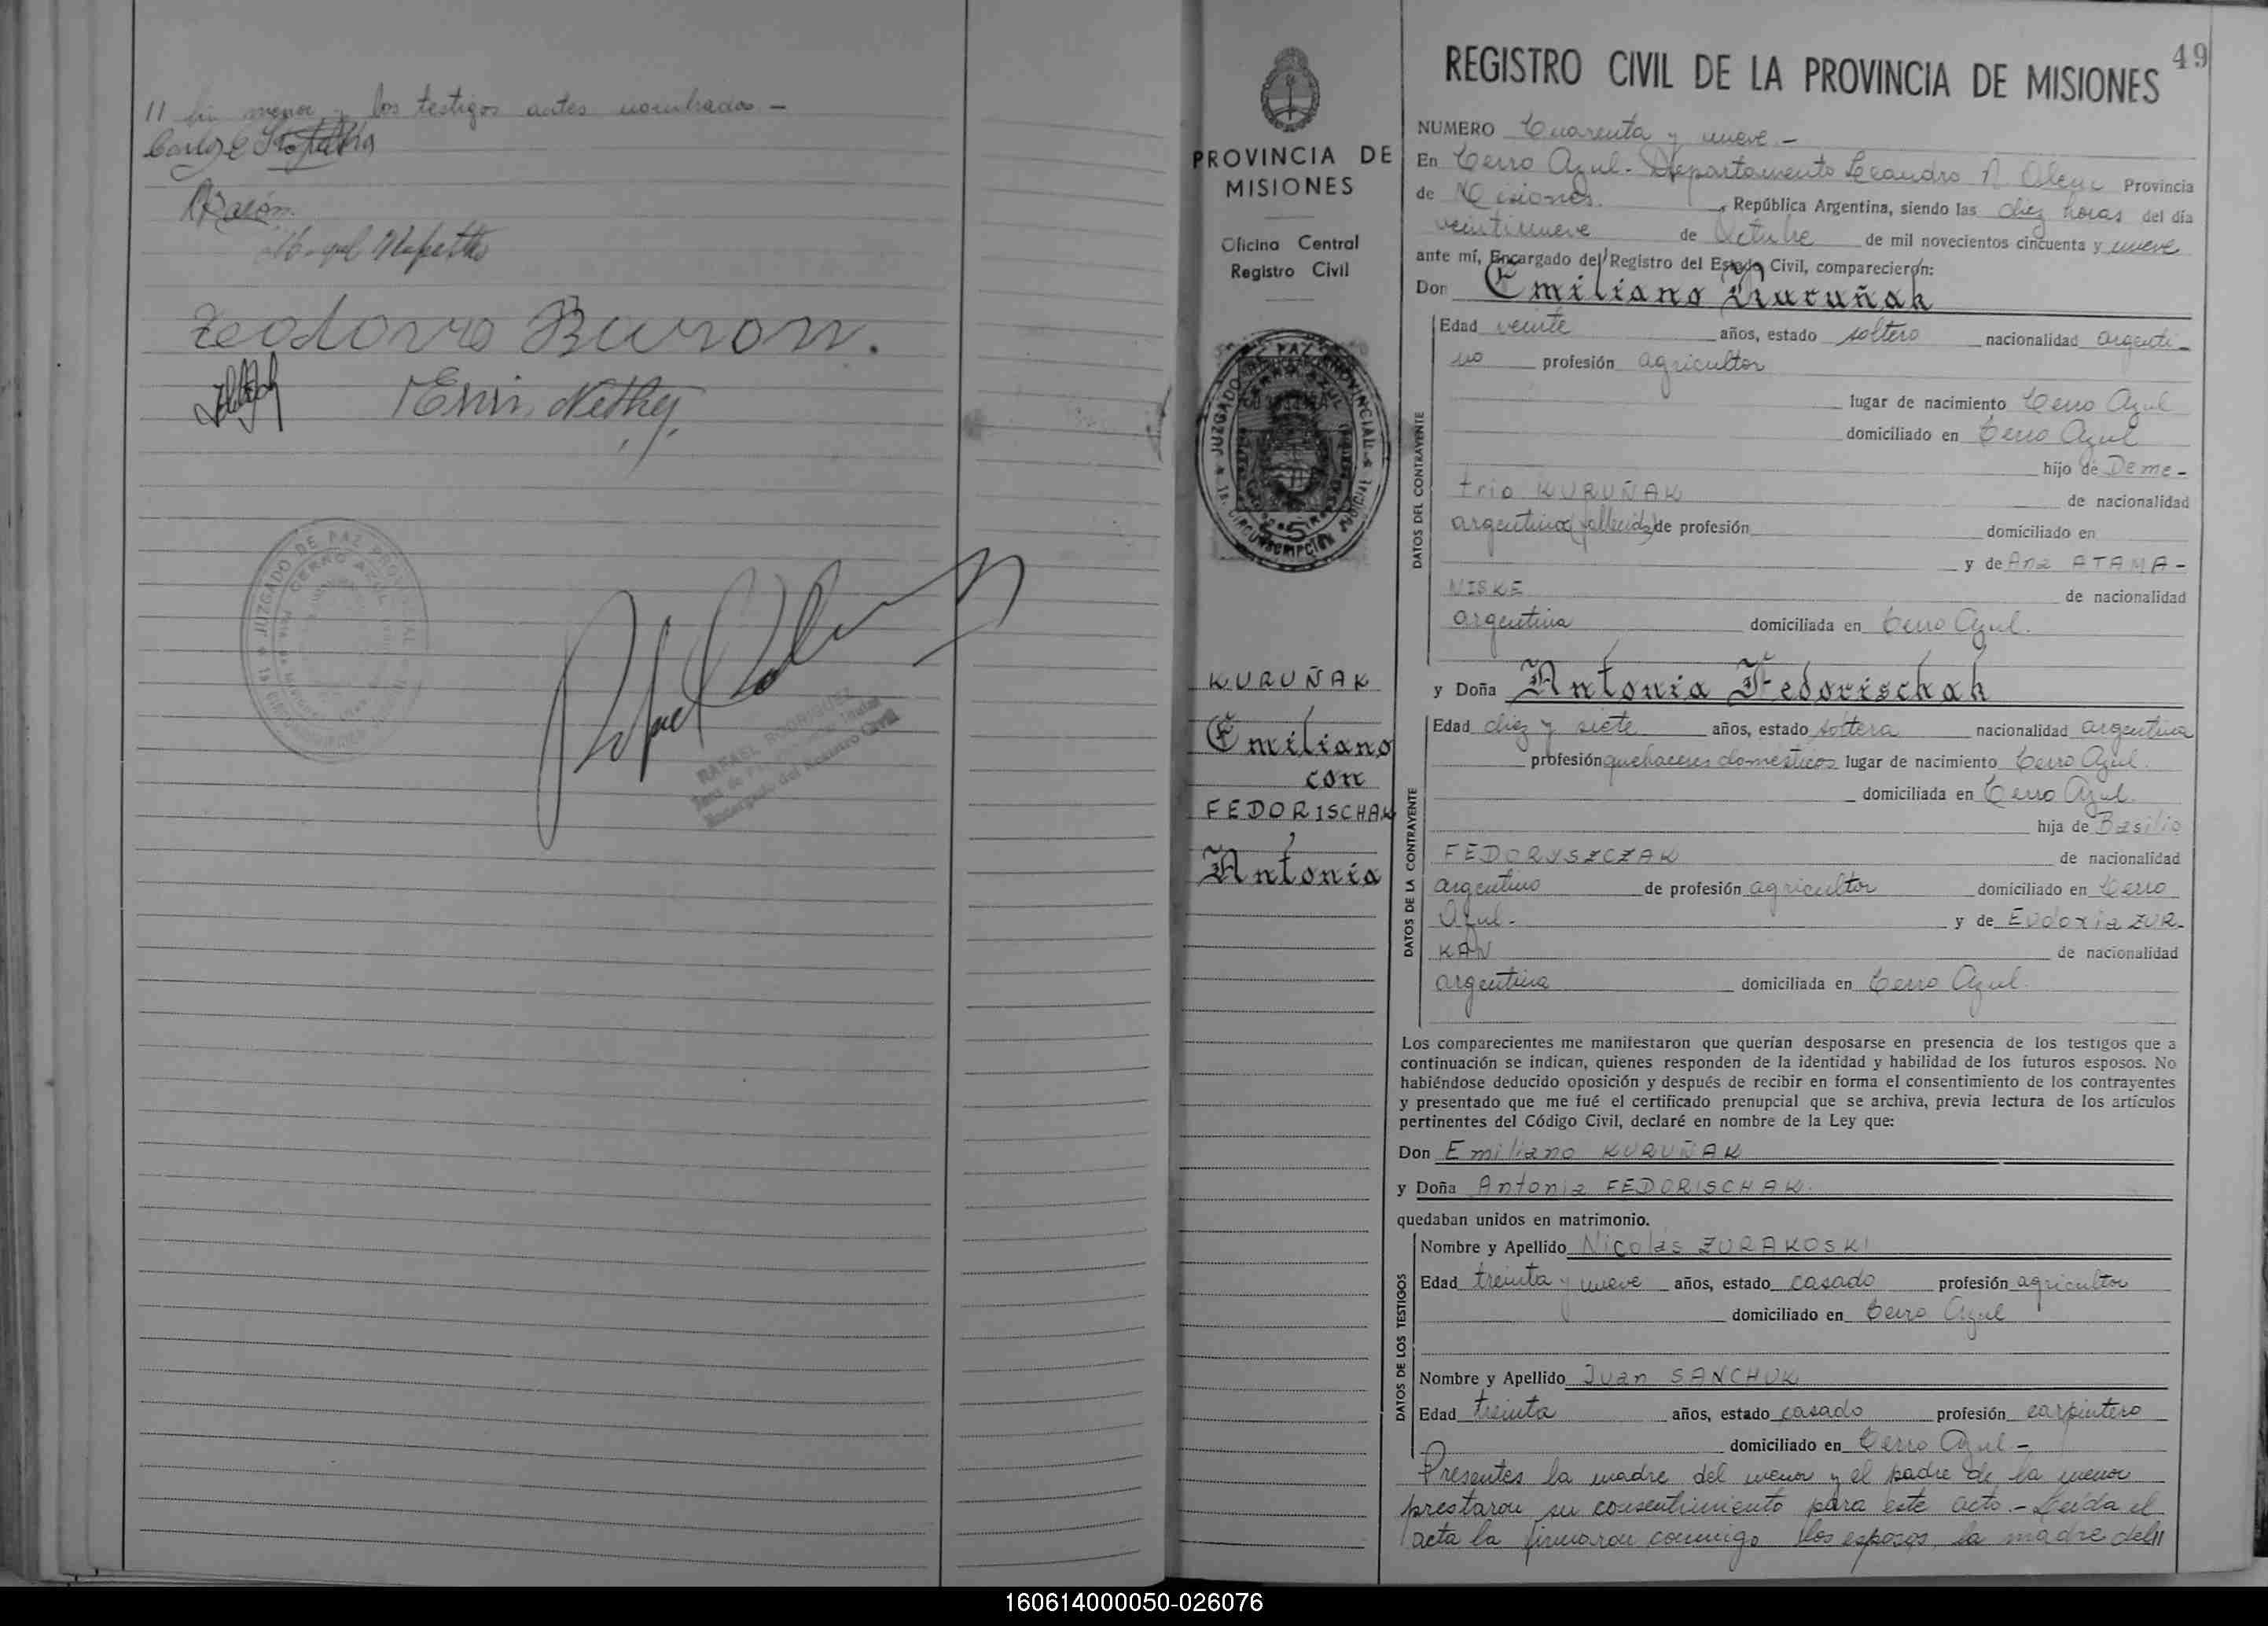 menor y los testigos antes nombrados -
Teodoro Buron.
JUZGADO DE PAZ PROVINCIAL
CERRO AZUL
RAFAEL RODRIGUEZ
Juez de Paz Titular
Encargado del Registro Civil
PROVINCIA DE
MISIONES
Oficina Central
Registro Civil
JUZGADO DE PAZ PROVINCIAL
CERRO AZUL
1a. CIRCUNSCRIPCIÓN JUDICIAL
5
KURUÑAK
Emiliano
con
FEDORISCHAK
Antonia
49
REGISTRO CIVIL DE LA PROVINCIA DE MISIONES
NUMERO Cuarenta y nueve -
En Cerro Azul - Departamento Leandro N Alem Provincia
de Misiones. , República Argentina, siendo las diez horas del día
veintinueve de Octubre de mil novecientos cincuenta y nueve
ante mí, Encargado del Registro del Estado Civil, comparecieron:
Don Emiliano Kuruñak
DATOS DEL CONTRAYENTE
Edad veinte años, estado soltero nacionalidad argenti-
no profesión agricultor
lugar de nacimiento Cerro Azul
domiciliado en Cerro Azul
hijo de Deme-
trio KURUÑAK de nacionalidad
argentino (fallecido) de profesión domiciliado en
y de Ana ATAMA-
NISKE de nacionalidad
argentina domiciliada en Cerro Azul.
y Doña Antonia Fedorischak
DATOS DE LA CONTRAYENTE
Edad diez y siete años, estado soltera nacionalidad argentina
profesión quehaceres domésticos lugar de nacimiento Cerro Azul.
domiciliada en Cerro Azul.
hija de Basilio
FEDORYSZCZAK de nacionalidad
argentino de profesión agricultor domiciliado en Cerro
Azul - y de Eudoxia ZUR-
KAN de nacionalidad
argentina domiciliada en Cerro Azul.
Los comparecientes me manifestaron que querían desposarse en presencia de los testigos que a
continuación se indican, quienes responden de la identidad y habilidad de los futuros esposos. No
habiéndose deducido oposición y después de recibir en forma el consentimiento de los contrayentes
y presentado que me fué el certificado prenupcial que se archiva, previa lectura de los artículos
pertinentes del Código Civil, declaré en nombre de la Ley que:
Don Emiliano KURUÑAK
y Doña Antonia FEDORISCHAK.
quedaban unidos en matrimonio.
DATOS DE LOS TESTIGOS
Nombre y Apellido Nicolas ZURAKOSKI
Edad treinta y nueve años, estado casado profesión agricultor
domiciliado en Cerro Azul
Nombre y Apellido Juan SANCHUK
Edad treinta años, estado casado profesión carpintero
domiciliado en Cerro Azul -
Presentes la madre del menor y el padre de la menor
prestaron su consentimiento para este acto. - Leída el
acta la firmaron conmigo los esposos, la madre del//
160614000050-026076